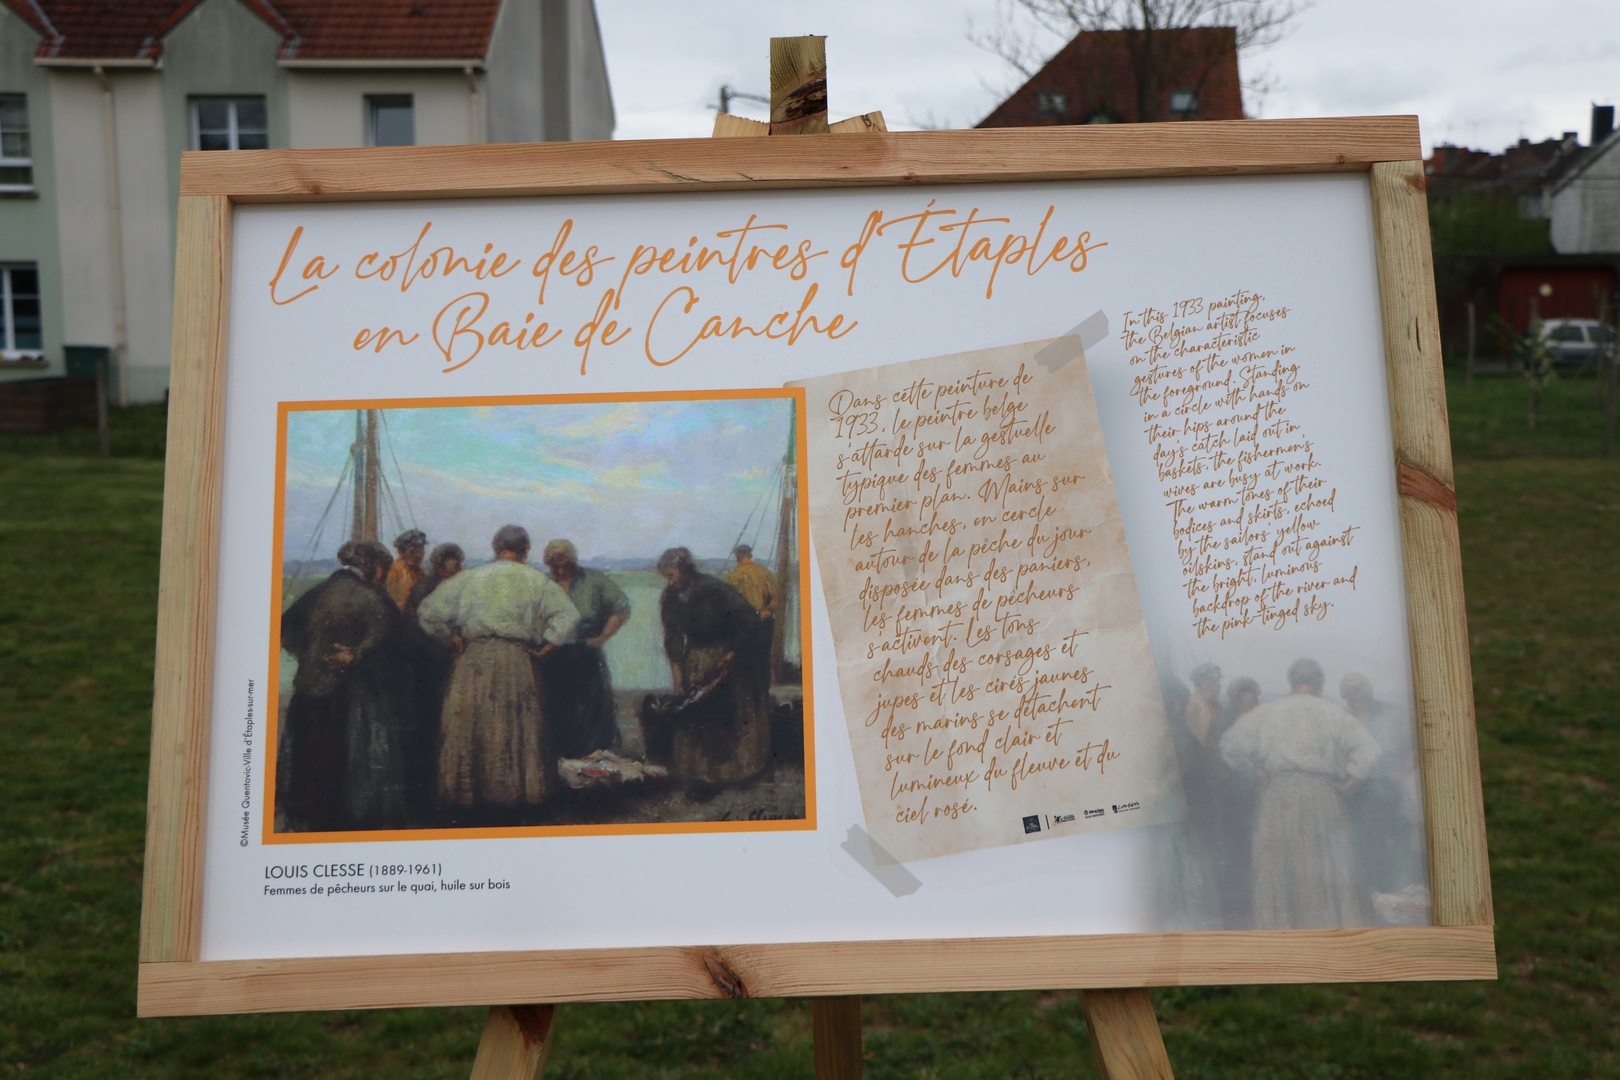 La colonie des peintres d'Étaples
en Baie de Canche
©Musée Quentovic-Ville d'Étaples-sur-mer
LOUIS CLESSE (1889-1961)
Femmes de pêcheurs sur le quai, huile sur bois
Dans cette peinture de
1933, le peintre belge
s'attarde sur la gestuelle
typique des femmes au
premier plan. Mains sur
les hanches, en cercle
autour de la pêche du jour
disposée dans des paniers,
les femmes de pêcheurs
s'activent. Les tons
chauds des corsages et
jupes et les cirés jaunes
des marins se détachent
sur le fond clair et
lumineux du fleuve et du
ciel rosé.
In this 1933 painting,
the Belgian artist focuses
on the characteristic
gestures of the women in
the foreground. Standing
in a circle with hands on
their hips around the
day's catch laid out in
baskets, the fishermen's
wives are busy at work.
The warm tones of their
bodices and skirts, echoed
by the sailors' yellow
oilskins, stand out against
the bright, luminous
backdrop of the river and
the pink-tinged sky.